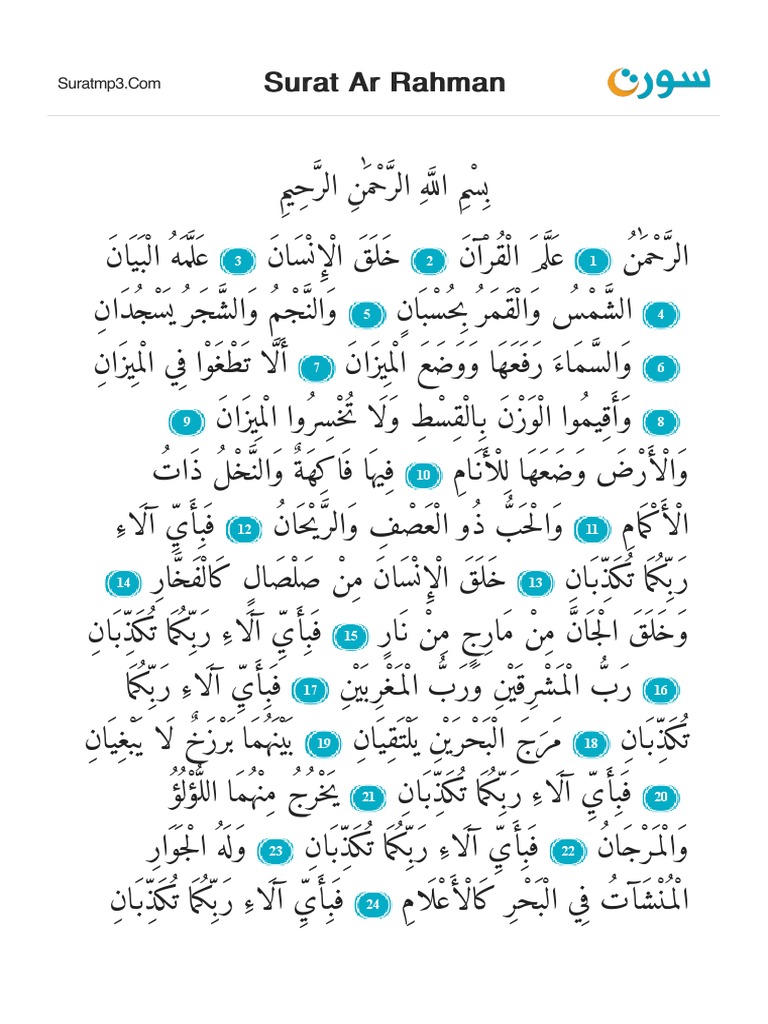 Suratmp3.Com
Surat Ar Rahman
سورة
بِسْمِ اللَّهِ الرَّحْمَٰنِ الرَّحِيمِ
الرَّحْمَٰنُ 1 عَلَّمَ الْقُرْآنَ 2 خَلَقَ الْإِنْسَانَ 3 عَلَّمَهُ الْبَيَانَ
4 الشَّمْسُ وَالْقَمَرُ بِحُسْبَانٍ 5 وَالنَّجْمُ وَالشَّجَرُ يَسْجُدَانِ
6 وَالسَّمَاءَ رَفَعَهَا وَوَضَعَ الْمِيزَانَ 7 أَلَّا تَطْغَوْا فِي الْمِيزَانِ
8 وَأَقِيمُوا الْوَزْنَ بِالْقِسْطِ وَلَا تُخْسِرُوا الْمِيزَانَ 9
وَالْأَرْضَ وَضَعَهَا لِلْأَنَامِ 10 فِيهَا فَاكِهَةٌ وَالنَّخْلُ ذَاتُ
الْأَكْمَامِ 11 وَالْحَبُّ ذُو الْعَصْفِ وَالرَّيْحَانُ 12 فَبِأَيِّ آلَاءِ
رَبِّكُمَا تُكَذِّبَانِ 13 خَلَقَ الْإِنْسَانَ مِنْ صَلْصَالٍ كَالْفَخَّارِ 14
وَخَلَقَ الْجَانَّ مِنْ مَارِجٍ مِنْ نَارٍ 15 فَبِأَيِّ آلَاءِ رَبِّكُمَا تُكَذِّبَانِ
16 رَبُّ الْمَشْرِقَيْنِ وَرَبُّ الْمَغْرِبَيْنِ 17 فَبِأَيِّ آلَاءِ رَبِّكُمَا
تُكَذِّبَانِ 18 مَرَجَ الْبَحْرَيْنِ يَلْتَقِيَانِ 19 بَيْنَهُمَا بَرْزَخٌ لَا يَبْغِيَانِ
20 فَبِأَيِّ آلَاءِ رَبِّكُمَا تُكَذِّبَانِ 21 يَخْرُجُ مِنْهُمَا اللُّؤْلُؤُ
وَالْمَرْجَانُ 22 فَبِأَيِّ آلَاءِ رَبِّكُمَا تُكَذِّبَانِ 23 وَلَهُ الْجَوَارِ
الْمُنْشَآتُ فِي الْبَحْرِ كَالْأَعْلَامِ 24 فَبِأَيِّ آلَاءِ رَبِّكُمَا تُكَذِّبَانِ